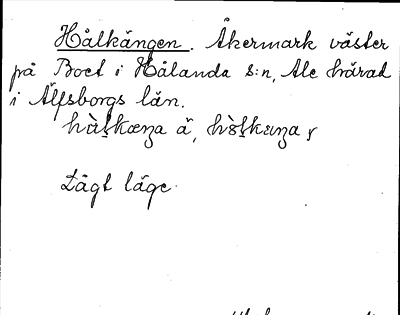 Hålkängen. Åkermark väster
på Boet i Hålanda s:n, Ale härad
i Älfsborgs län.
Lågt läge.